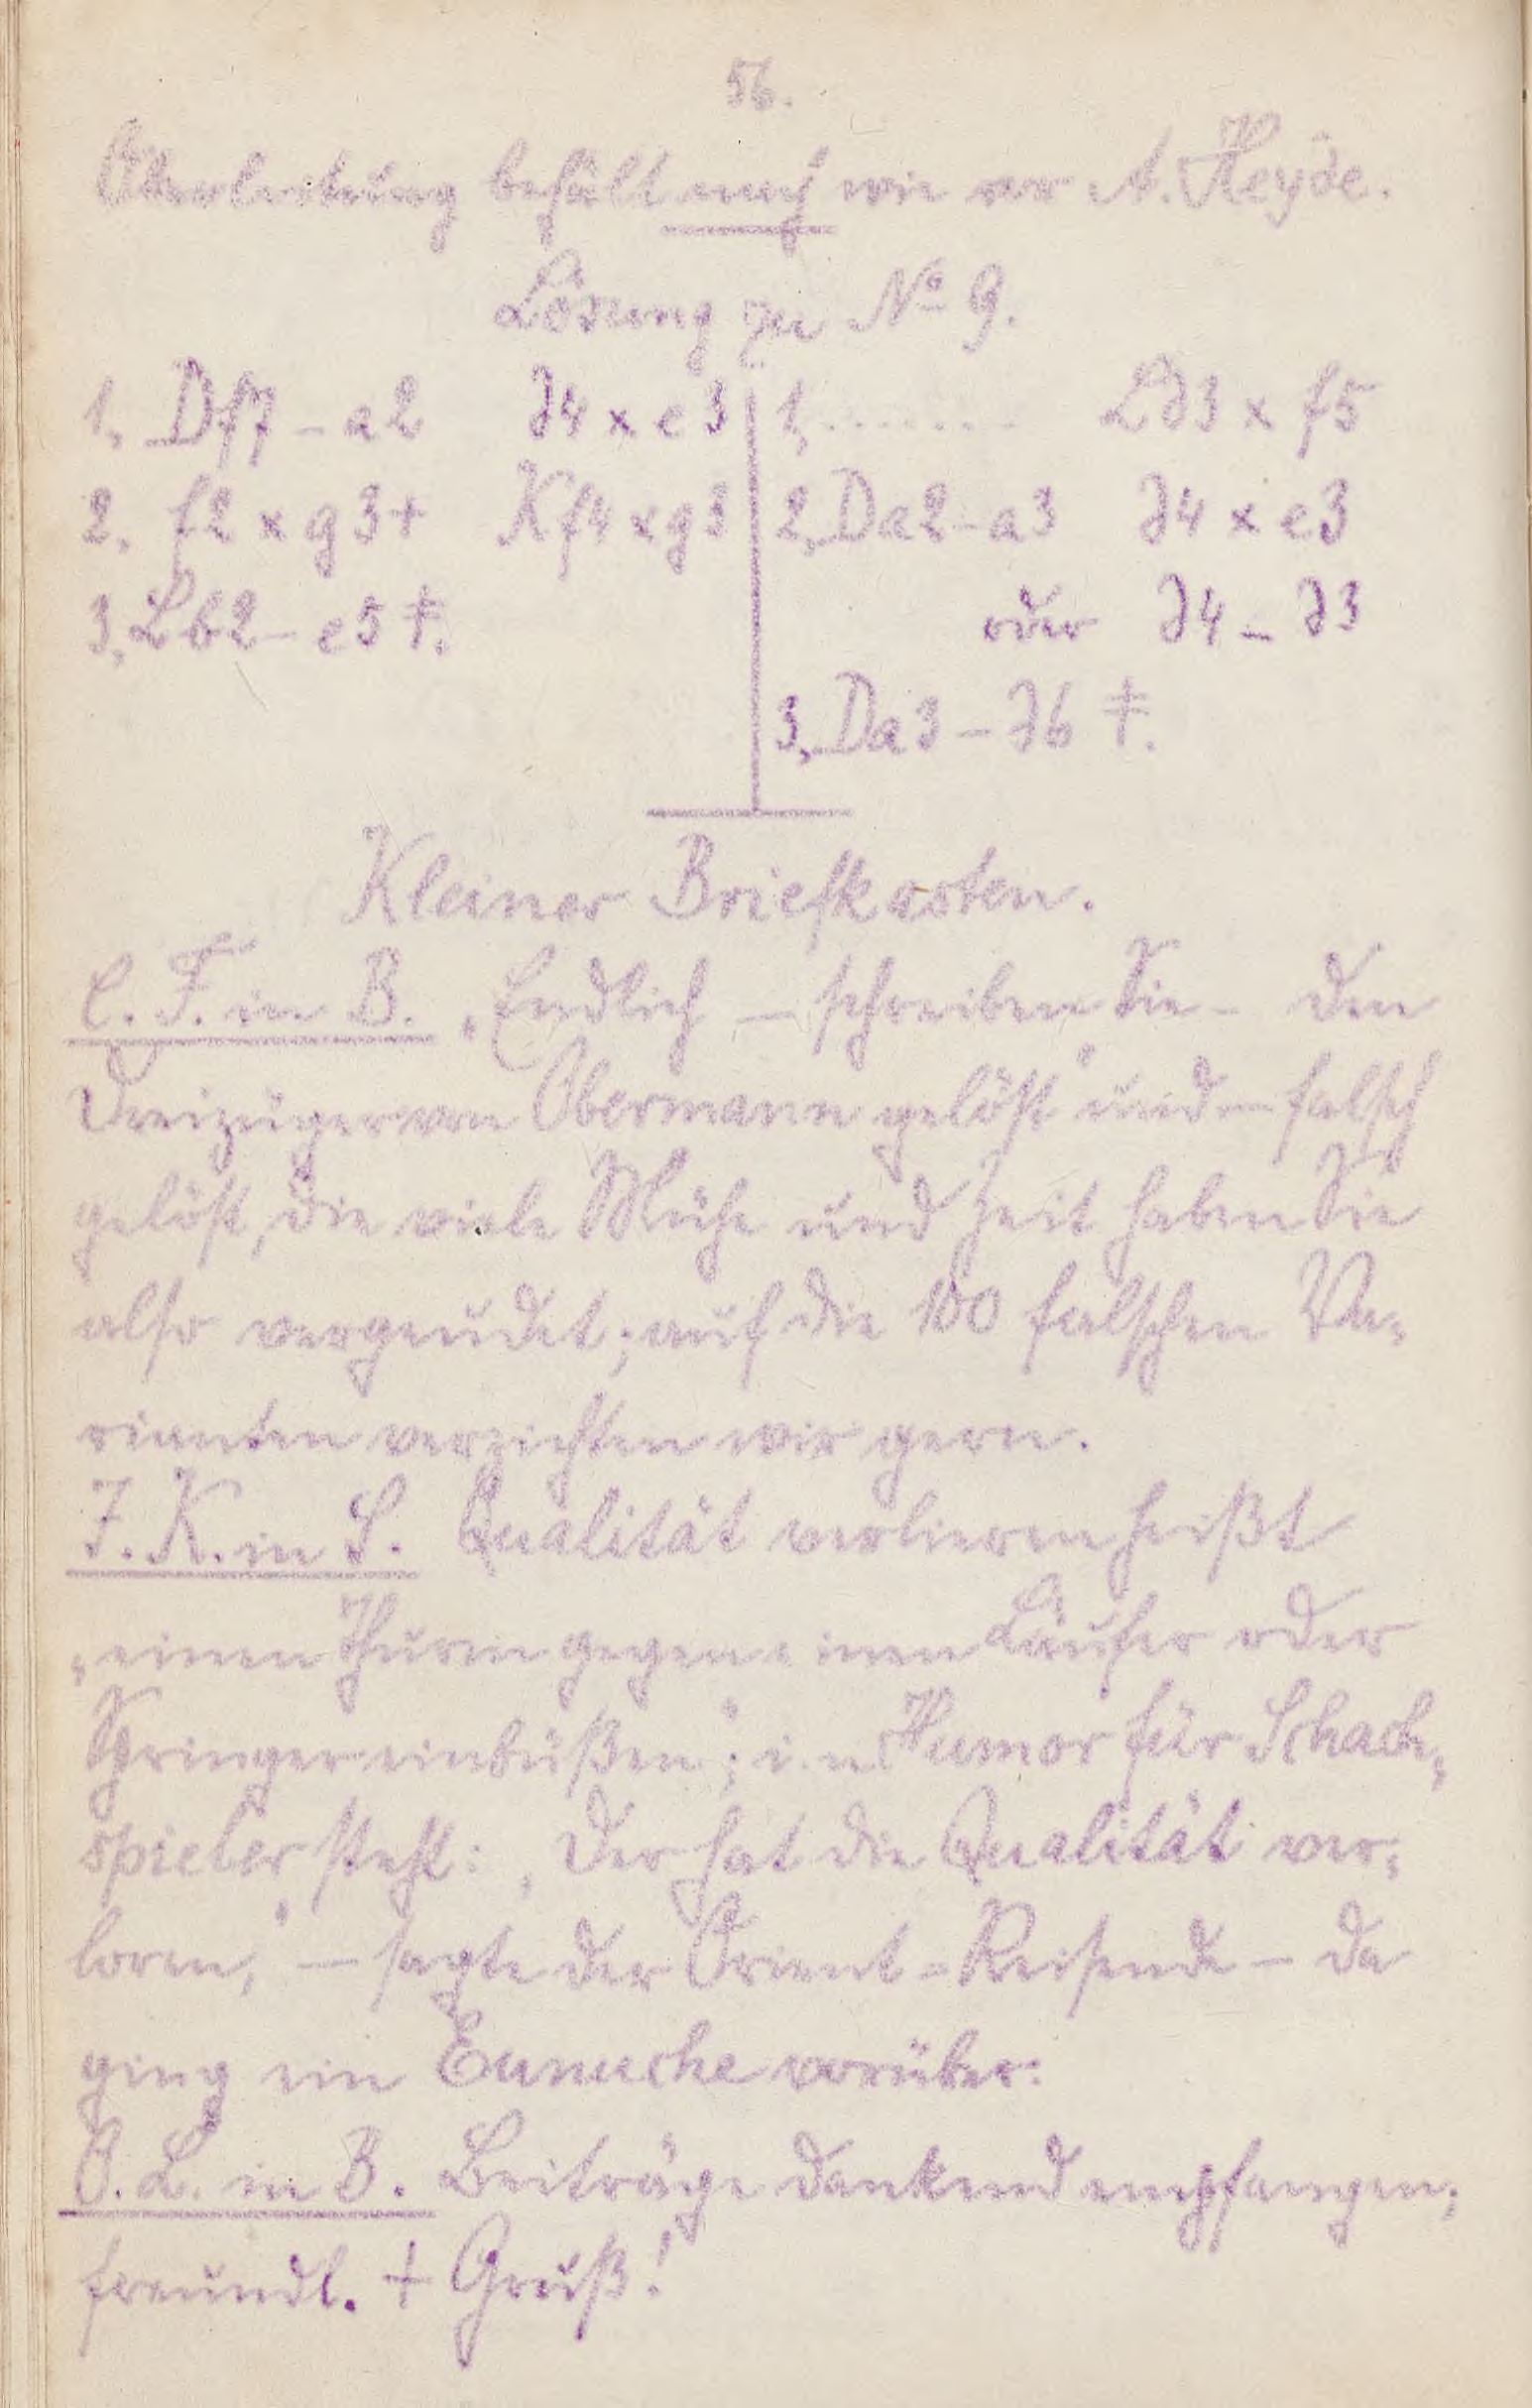 56.
Oberleitung behält nach wie vor A. Heyde.
Lösung zu No 9.
1, Df7 – a2 d4 x e3 1, ........ Ld3 x f5
2, f2 x g3+ Kf4 x g3 2, Da2 – a3 d4 x e3
3, Lb2 – e5 ‡. oder d4 – d3
3, Da3 – d6 ‡.
Kleiner Briefkasten.
C. F. in B. „Endlich – schreiben Sie – den
Dreizüger von Obermann gelöst“ und – falsch
gelöst, die viele Mühe und Zeit haben Sie
also vergeudet; auf die 100 falschen Va-
rianten verzichten wir gern.
J. K. in S. Qualität verlieren heißt
„einen Thurm gegen einen Läufer oder
Springer einbüßen“; im Humor für Schach-
spieler steht: „Der hat die Qualität ver-
loren,“ – sagte der Orient-Reisende – da
ging ein Eunuche vorüber:
O. L. in B. Beiträge dankend empfangen;
freundl. + Gruß!